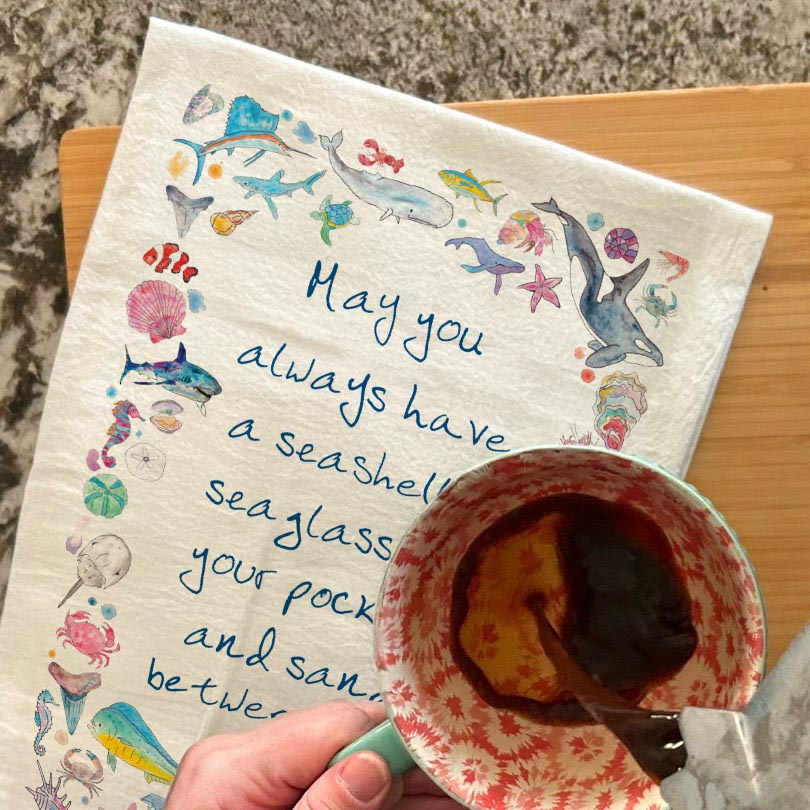 May you
always have
a seashell
seaglass
your pock
and san
betwee